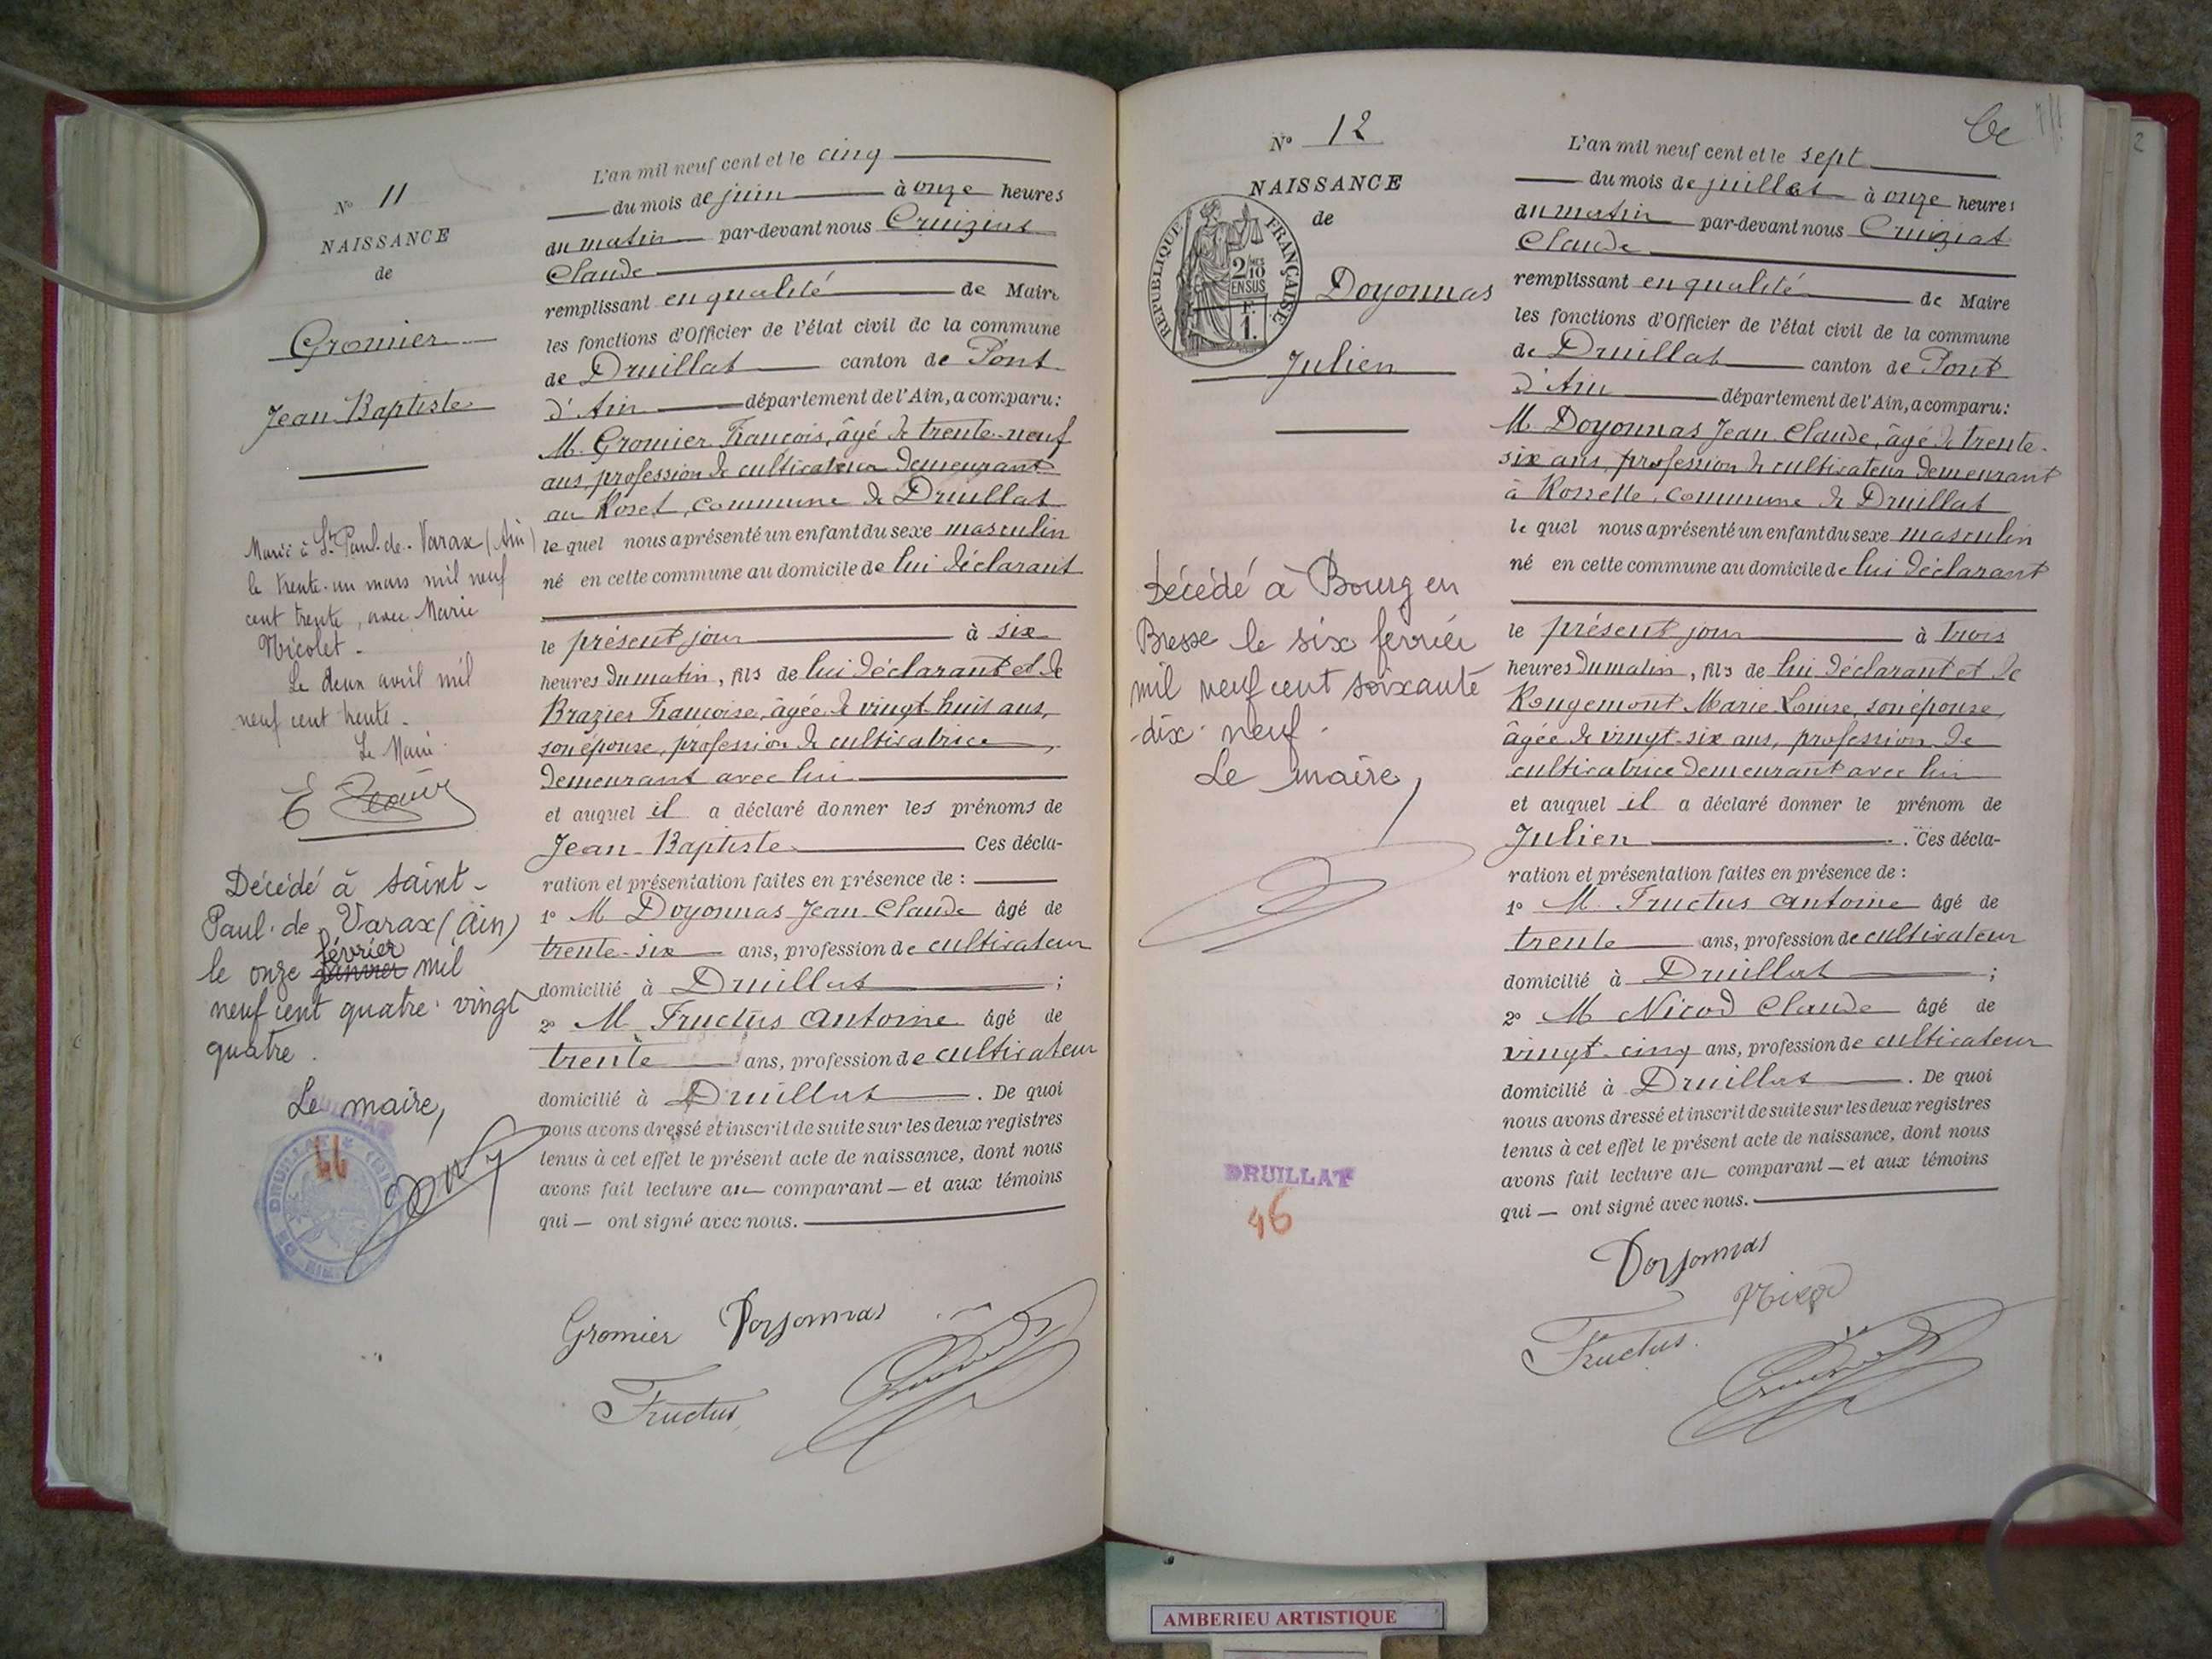 N° 11
NAISSANCE
de
Gromier
Jean-Baptiste
Marié à St Paul-de-Varax (Ain)
le trente-un mars mil neuf
cent trente, avec Marie
Nicolet.
Le deux avril mil
neuf cent trente.
Le Maire
Décédé à Saint-
Paul-de-Varax (Ain)
février
le onze janvier mil
neuf cent quatre-vingt
quatre.
Le maire,
L'an mil neuf cent et le cinq
du mois de juin à onze heures
du matin par-devant nous Cruiziat
Claude
remplissant en qualité de Maire
les fonctions d'Officier de l'état civil de la commune
de Druillat canton de Pont
d'Ain département de l'Ain, a comparu:
M. Gromier François, âgé de trente-neuf
ans, profession de cultivateur demeurant
au Roset, commune de Druillat
le quel nous a présenté un enfant du sexe masculin
né en cette commune au domicile de lui déclarant
le présent jour à six
heures du matin, fils de lui déclarant et de
Brazier Françoise, âgée de vingt huit ans,
son épouse, profession de cultivatrice,
demeurant avec lui
et auquel il a déclaré donner les prénoms de
Jean-Baptiste Ces décla-
ration et présentation faites en présence de :
1° M Doyonnas Jean Claude âgé de
trente-six ans, profession de cultivateur
domicilié à Druillat ;
2° M. Fructus Antoine âgé de
trente ans, profession de cultivateur
domicilié à Druillat. De quoi
nous avons dressé et inscrit de suite sur les deux registres
tenus à cet effet le présent acte de naissance, dont nous
avons fait lecture au comparant et aux témoins
qui ont signé avec nous.
Gromier Doyonnas
Fructus
N° 12
NAISSANCE
de
REPUBLIQUE FRANÇAISE
2/10
EN SUS
1.
Doyonnas
Julien
Décédé à Bourg en
Bresse le six ferrier
mil neuf cent soixante
-dix-neuf.
Le maire,
DRUILLAT
46
L'an mil neuf cent et le sept
du mois de juillet à onze heures
du matin par-devant nous Cruiziat
Claude
remplissant en qualité de Maire
les fonctions d'Officier de l'état civil de la commune
de Druillat canton de Pont
d'Ain département de l'Ain, a comparu:
M. Doyonnas Jean Claude, âgé de trente-
six ans, profession de cultivateur demeurant
à Rossette, commune de Druillat
le quel nous a présenté un enfant du sexe masculin
né en cette commune au domicile de lui déclarant
le présent jour à trois
heures du matin, fils de lui déclarant et de
Rougemont Marie Louise, son épouse,
âgée de vingt-six ans, profession de
cultivatrice demeurant avec lui
et auquel il a déclaré donner le prénom de
Julien. Ces décla-
ration et présentation faites en présence de :
1° M. Fructus Antoine âgé de
trente ans, profession de cultivateur
domicilié à Druillat ;
2° M Nicod Claude âgé de
vingt-cinq ans, profession de cultivateur
domicilié à Druillat. De quoi
nous avons dressé et inscrit de suite sur les deux registres
tenus à cet effet le présent acte de naissance, dont nous
avons fait lecture au comparant et aux témoins
qui ont signé avec nous.
Doyonnas
Nicod
Fructus.
AMBERIEU ARTISTIQUE